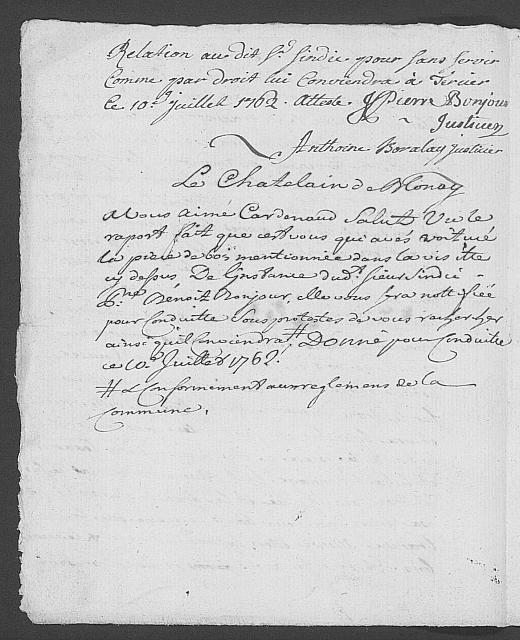 Relation audit Sr. sindic pour sans servir
Comme par droit lui Conviendra à Tercier
Le 10e. juillet 1762. Atteste JPierre Bonjour
Justicier
Anthoine Boralay justicier
Le Chatelain de
A Vous aimé Cardenaud Salut Vu le
raport fait que cert vous qui avés voituré
la piece de bois mentionnée dans la visitte
cy dessus, De Ljnstance dudt. sieur sindic
Benoit Bonjour, elle vous sera nottifiée
pour conduitte sous protestes de vous rechercher
ainsi quil Conviendra # Donné pour conduitte
ce 10e. Juillet 1762.
# & Conformément aux reglemens de la
Commune.